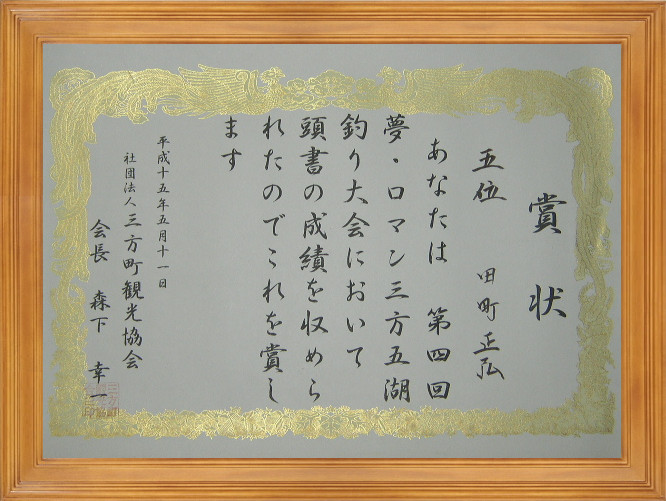 賞状
五位 田町正弘
あなたは 第四回
夢・ロマン三方五湖
釣り大会において
頭書の成績を収めら
れたのでこれを賞し
ます
平成十五年五月十一日
社団法人三方町観光協会
会長 森下 幸一